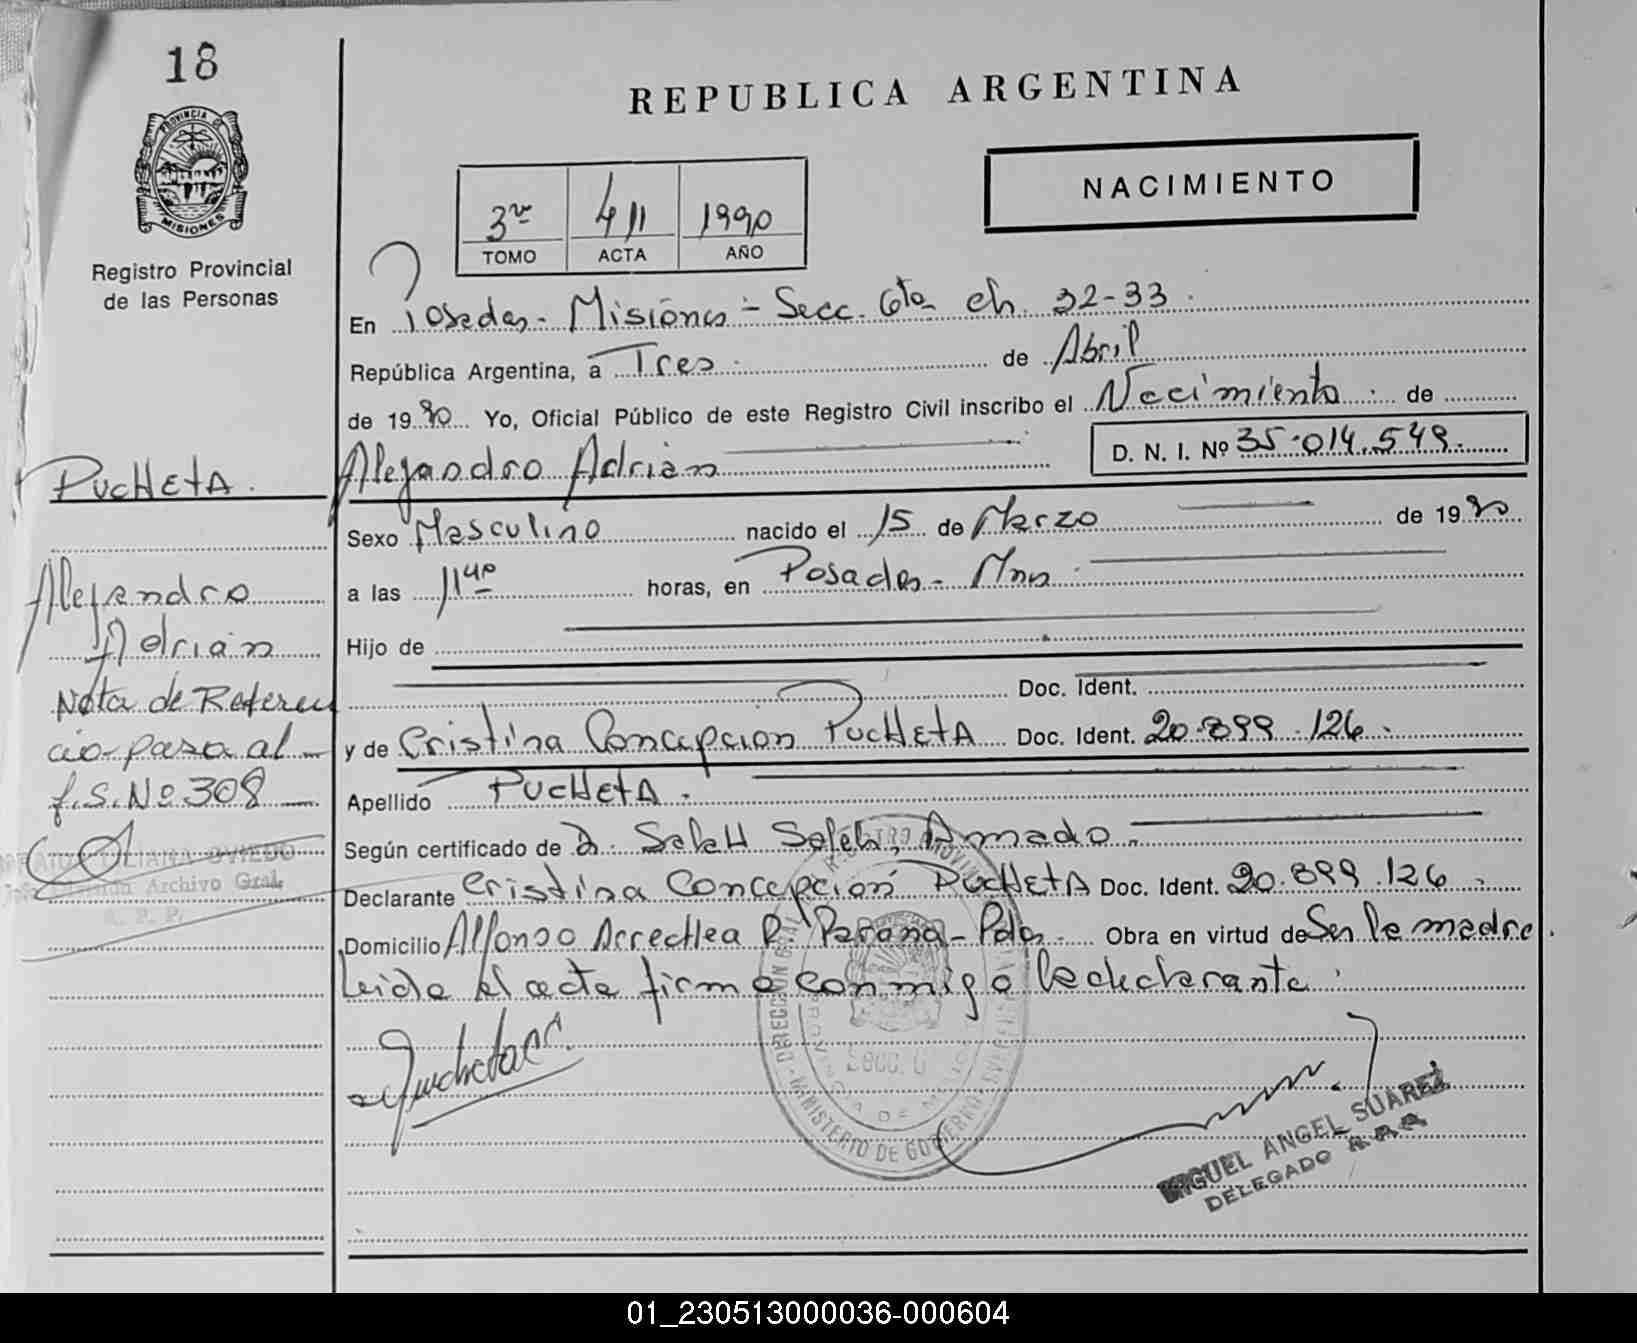 18
REPUBLICA ARGENTINA
PROVINCIA DE
MISIONES
Registro Provincial
de las Personas
NACIMIENTO
3º 411 1990
TOMO ACTA AÑO
En Posadas - Misiones - Secc. 6ta ch. 32-33.
República Argentina, a Tres de Abril
de 1990 Yo, Oficial Público de este Registro Civil inscribo el Nacimiento de
Alejandro Adrian D. N. I. Nº 35.014.549.
Sexo Masculino nacido el 15 de Marzo de 1990
a las 11 40 horas, en Posadas - Mnes
Hijo de
Doc. Ident.
y de Cristina Concepcion PucHetA Doc. Ident. 20.899.126.
Apellido PucHetA.
Según certificado de D. SalaH Saleh, Amado.
Declarante Cristina Concepción PucHetA Doc. Ident. 20.899.126.
Domicilio Alfonso ArrecHea P. Parana - Pdas. Obra en virtud de Ser la madre.
Leida el acta firma conmigo la declarante.
PucHetA.
Alejandro
Adrian
Nota de Referen
cia pasa al
f.S.Nº 308
LILIANA OVIEDO
Archivo Gral.
R. P. P.
Pucheta C.
SECC. 6
MINISTERIO DE GOBIERNO
MIGUEL ANGEL SUAREZ
DELEGADO R.P.P.
01_230513000036-000604